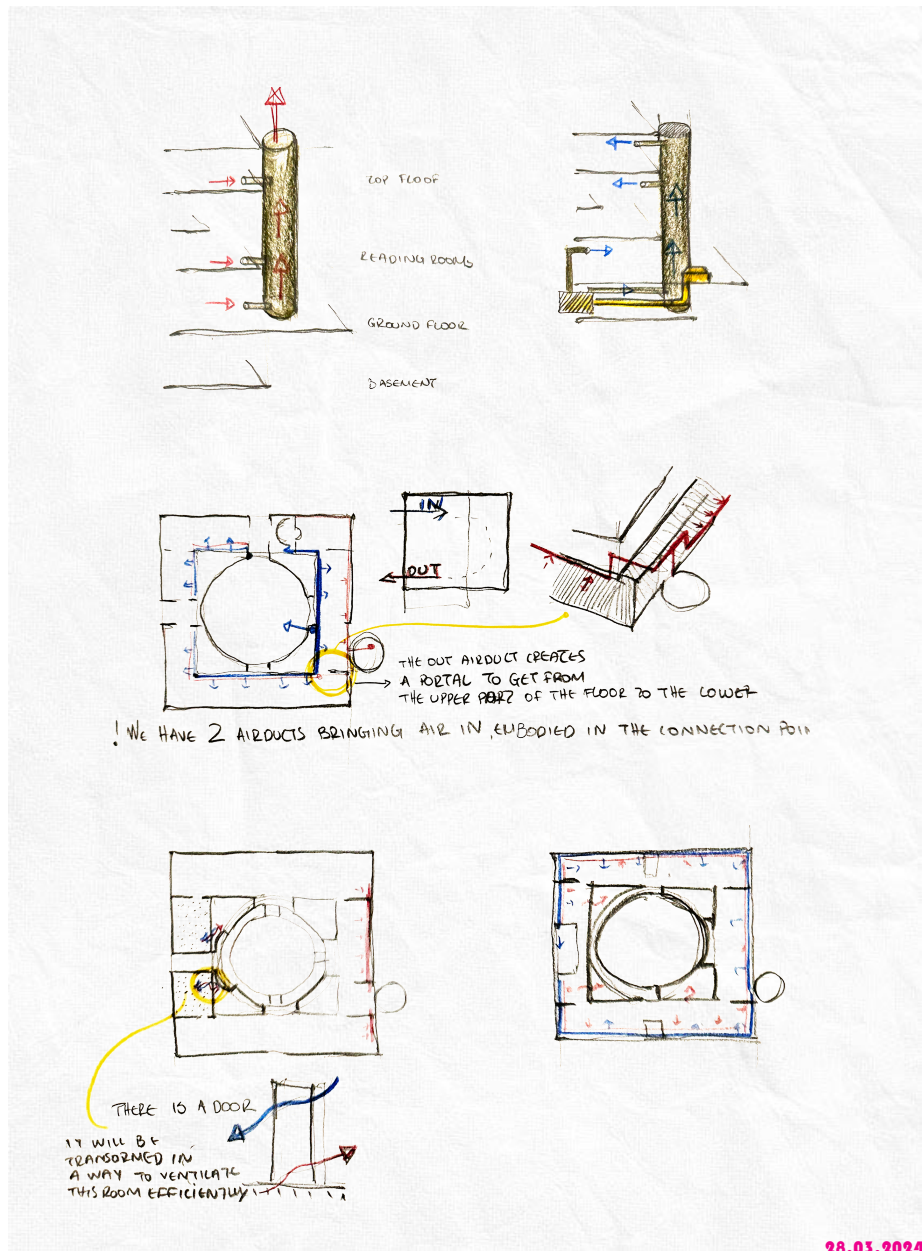 TOP FLOOF
READING ROOMS
GROUND FLOOR
BASEMENT
IN
OUT
THE OUT AIRDUCT CREATES
A PORTAL TO GET FROM
THE UPPER PART OF THE FLOOR TO THE LOWER
! WE HAVE 2 AIRDUCTS BRINGING AIR IN, EMBODIED IN THE CONNECTION POIN
THERE IS A DOOR
IT WILL BE
TRANSORMED IN
A WAY TO VENTILATE
THIS ROOM EFFICIENTLY
28.03.2024